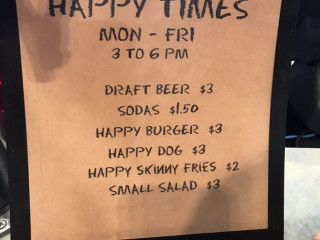 HAPPY TIMES
MON - FRI
3 TO 6 PM
DRAFT BEER $3
SODAS $1.50
HAPPY BURGER $3
HAPPY DOG $3
HAPPY SKINNY FRIES $2
SMALL SALAD $3